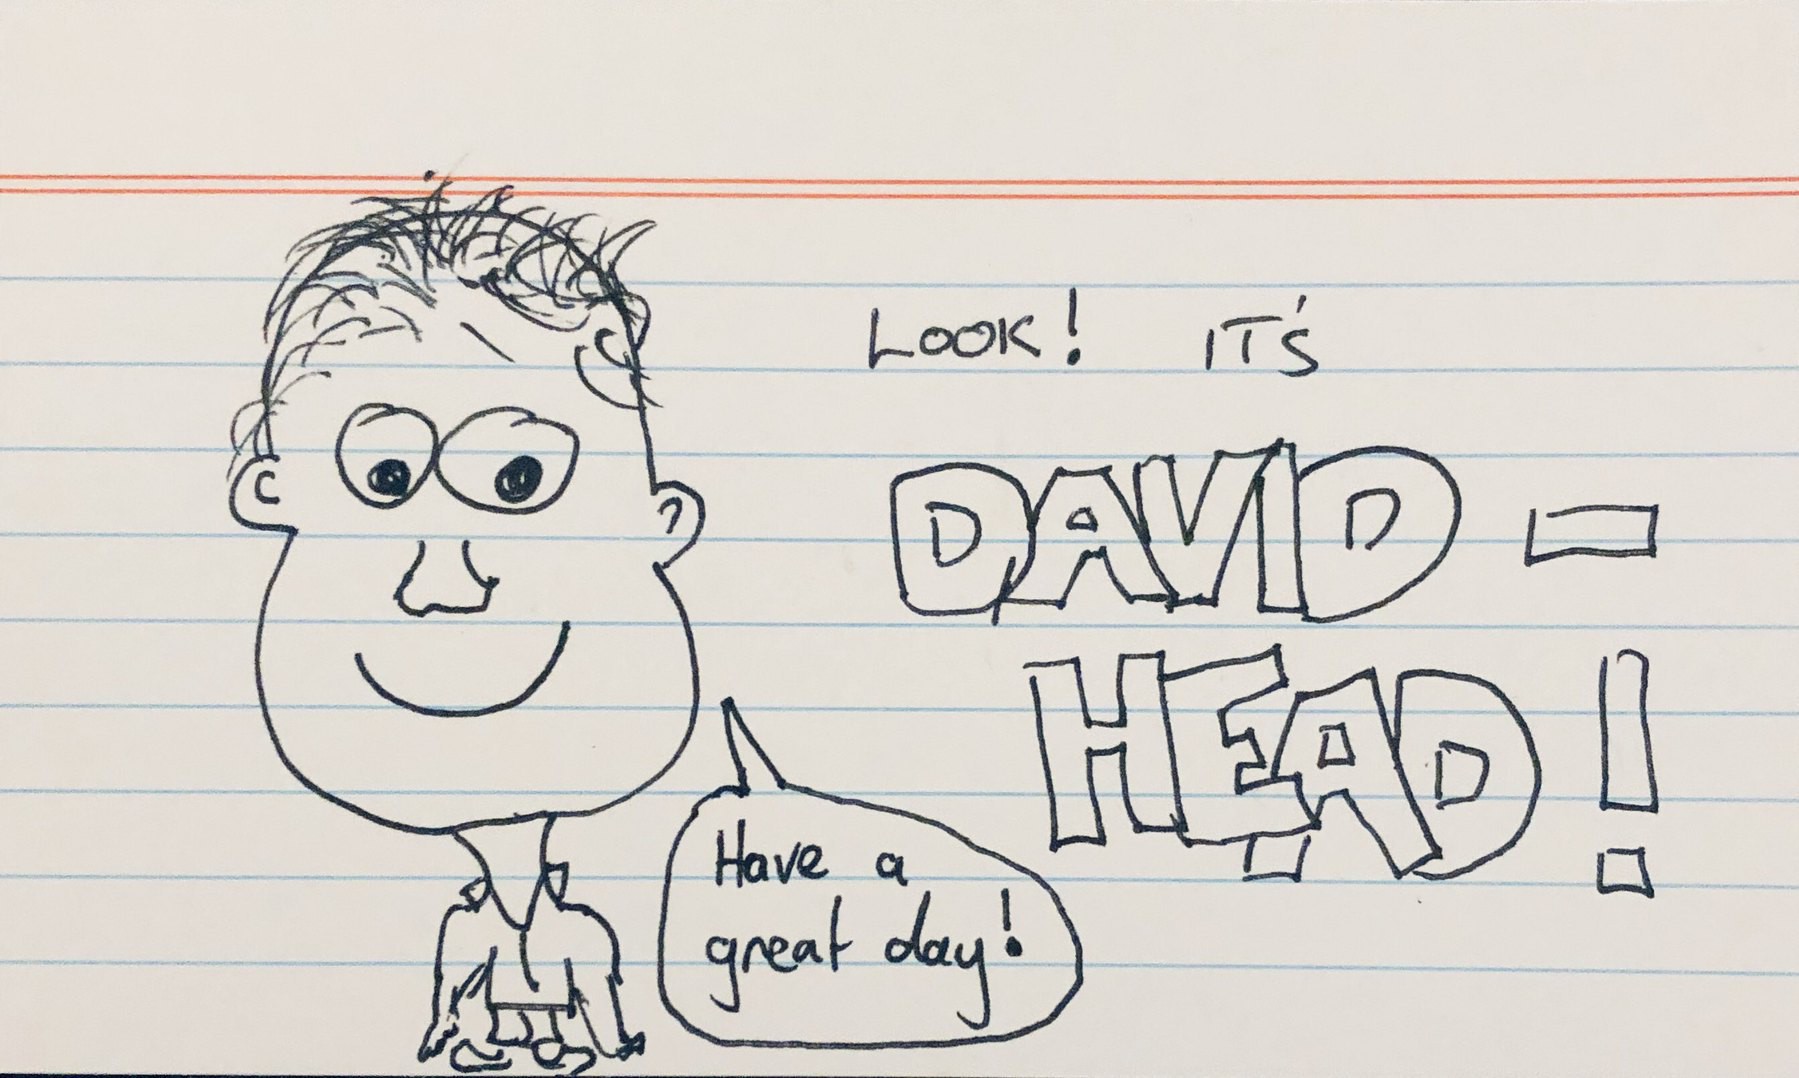 LOOK! IT'S
DAVID-
HEAD!
Have a
great day!